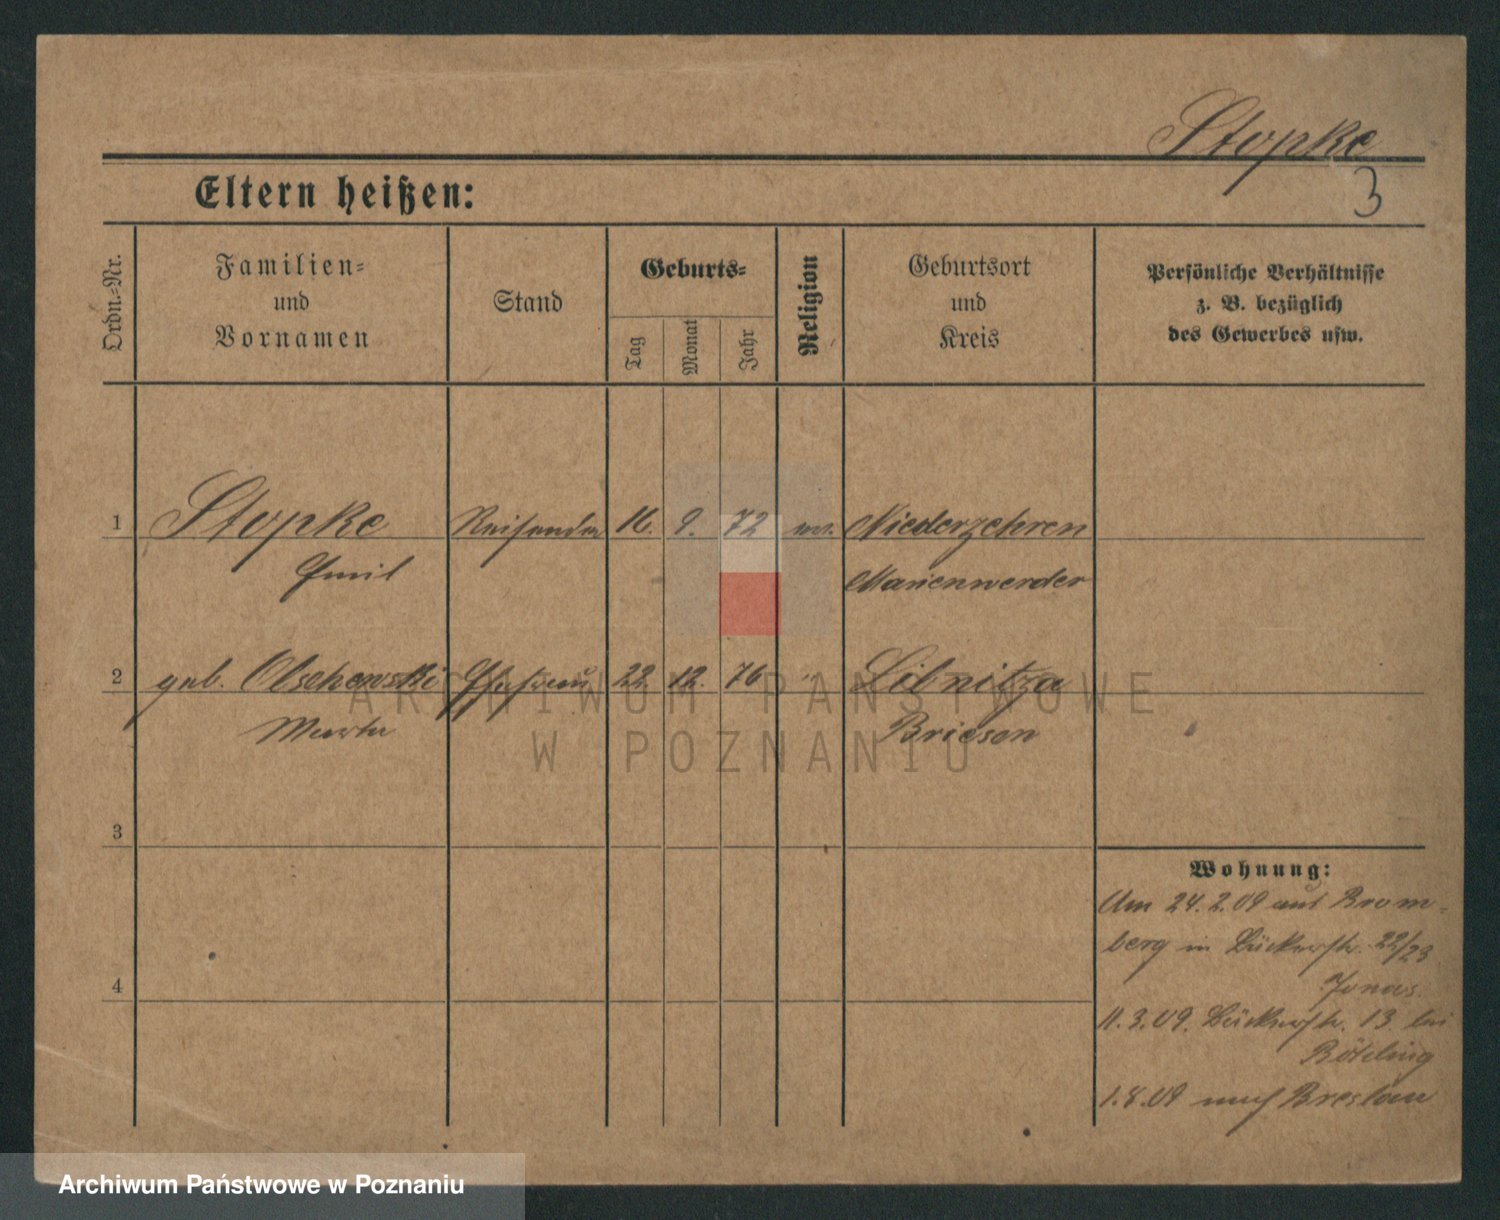 Stopke
3
Eltern heißen:
Ordn.-Nr.
Familien-
und
Vornamen
Stand
Geburts-
Tag
Monat
Jahr
Religion
Geburtsort
und
Kreis
Persönliche Verhältnisse
z. B. bezüglich
des Gewerbes usw.
1 Stopke Reisender 16. 9. 72 ev. Niederzehren
Emil Marienwerder
2 geb. Olschewski Ehefrau 22. 12. 76 " Libnitza
Marta Briesen
ARCHIWUM PAŃSTWOWE
W POZNANIU
3
4
Wohnung:
Am 24.2.09 aus Brom-
berg in Bäckerstr. 22/23
Jonas.
11.3.09. Bäckerstr. 13 bei
Böteling
1.8.09 nach Breslau
Archiwum Państwowe w Poznaniu